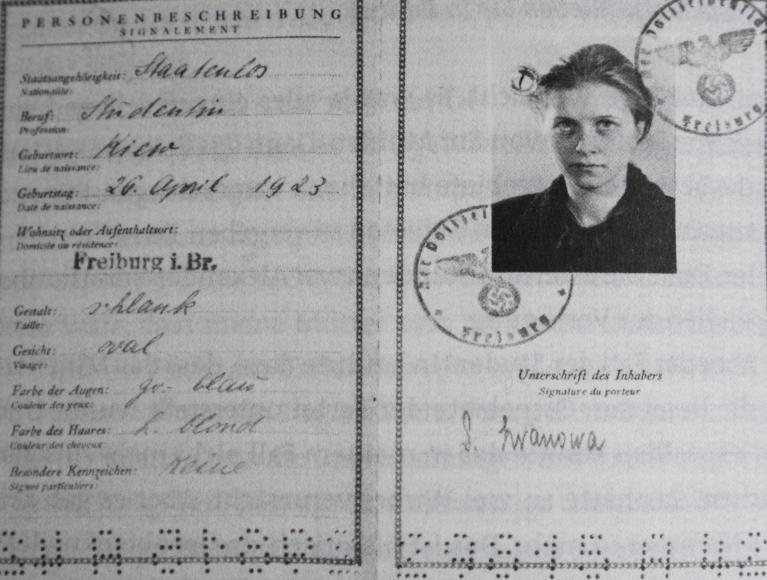 PERSONENBESCHREIBUNG
SIGNALEMENT
Staatsangehörigkeit: Staatenlos
Nationalité:
Beruf: Studentin
Profession:
Geburtsort: Kiew
Lieu de naissance:
Geburtstag: 26. April 1923
Date de naissance:
Wohnsitz oder Aufenthaltsort:
Domicile ou résidence:
Freiburg i. Br.
Gestalt: schlank
Taille:
Gesicht: oval
Visage:
Farbe der Augen: gr.- blau
Couleur des yeux:
Farbe des Haares: h. blond
Couleur des cheveux:
Besondere Kennzeichen: Keine
Signes particuliers:
Freiburg
Freiburg
Unterschrift des Inhabers
Signature du porteur
Iwanowa